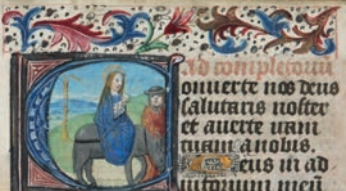 ad completoriū
Conuerte nos deus
salutaris noster
et auerte iram
tuam a nobis.
Deus in ad
iutorium meū